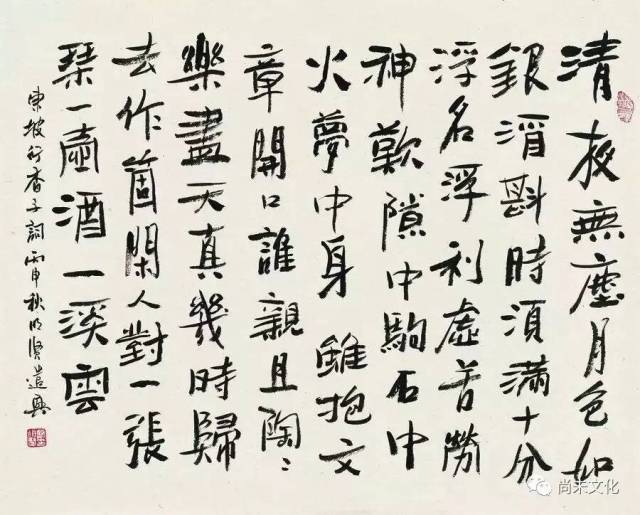 清夜無塵月色如
銀酒斟時須滿十分
浮名浮利虛苦勞
神歎隙中駒石中
火夢中身 雖抱文
章開口誰親且陶〻
樂盡天真幾時歸
去作箇閑人對一張
琴一壺酒一溪雲
東坡行香子詞丙申秋明賢遣興
尚未文化